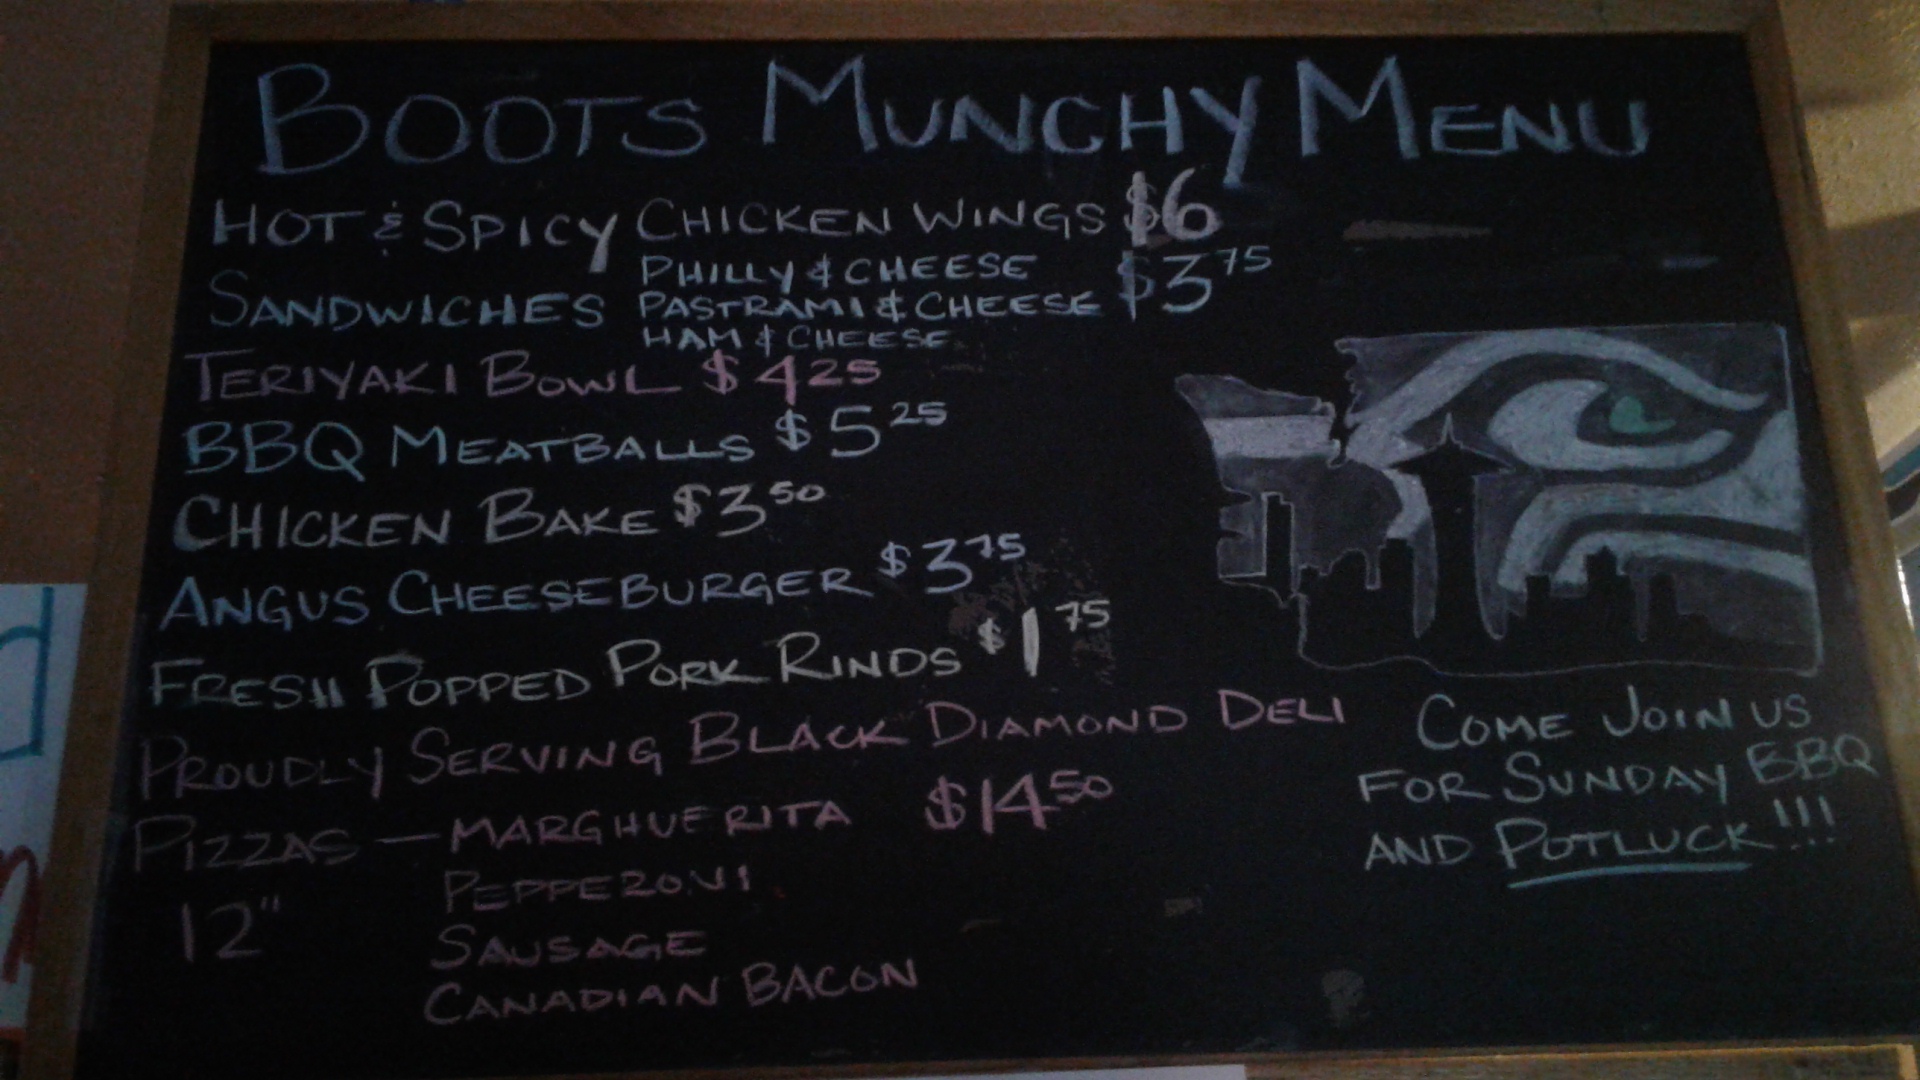 BOOTS MUNCHY MENU
HOT & SPICY CHICKEN WINGS $6
PHILLY & CHEESE
SANDWICHES PASTRAMI & CHEESE $3 75
HAM & CHEESE
TERIYAKI BOWL $4 25
BBQ MEATBALLS $5 25
CHICKEN BAKE $3 50
ANGUS CHEESEBURGER $3 75
FRESH POPPED PORK RINDS $1 75
PROUDLY SERVING BLACK DIAMOND DELI
PIZZAS — MARGHUERITA $14 50
12" PEPPERONI
SAUSAGE
CANADIAN BACON
COME JOIN US
FOR SUNDAY BBQ
AND POTLUCK!!!